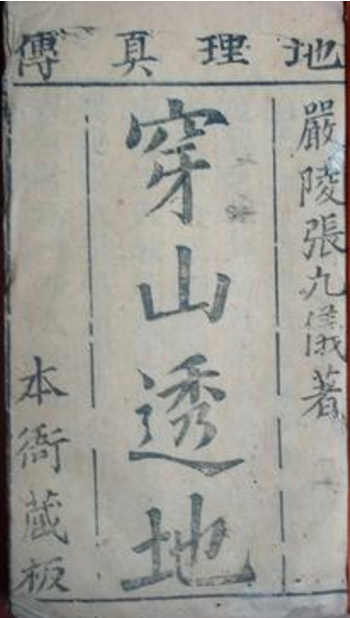 地理真傳
嚴陵張九儀著
穿山透地
本衙藏板